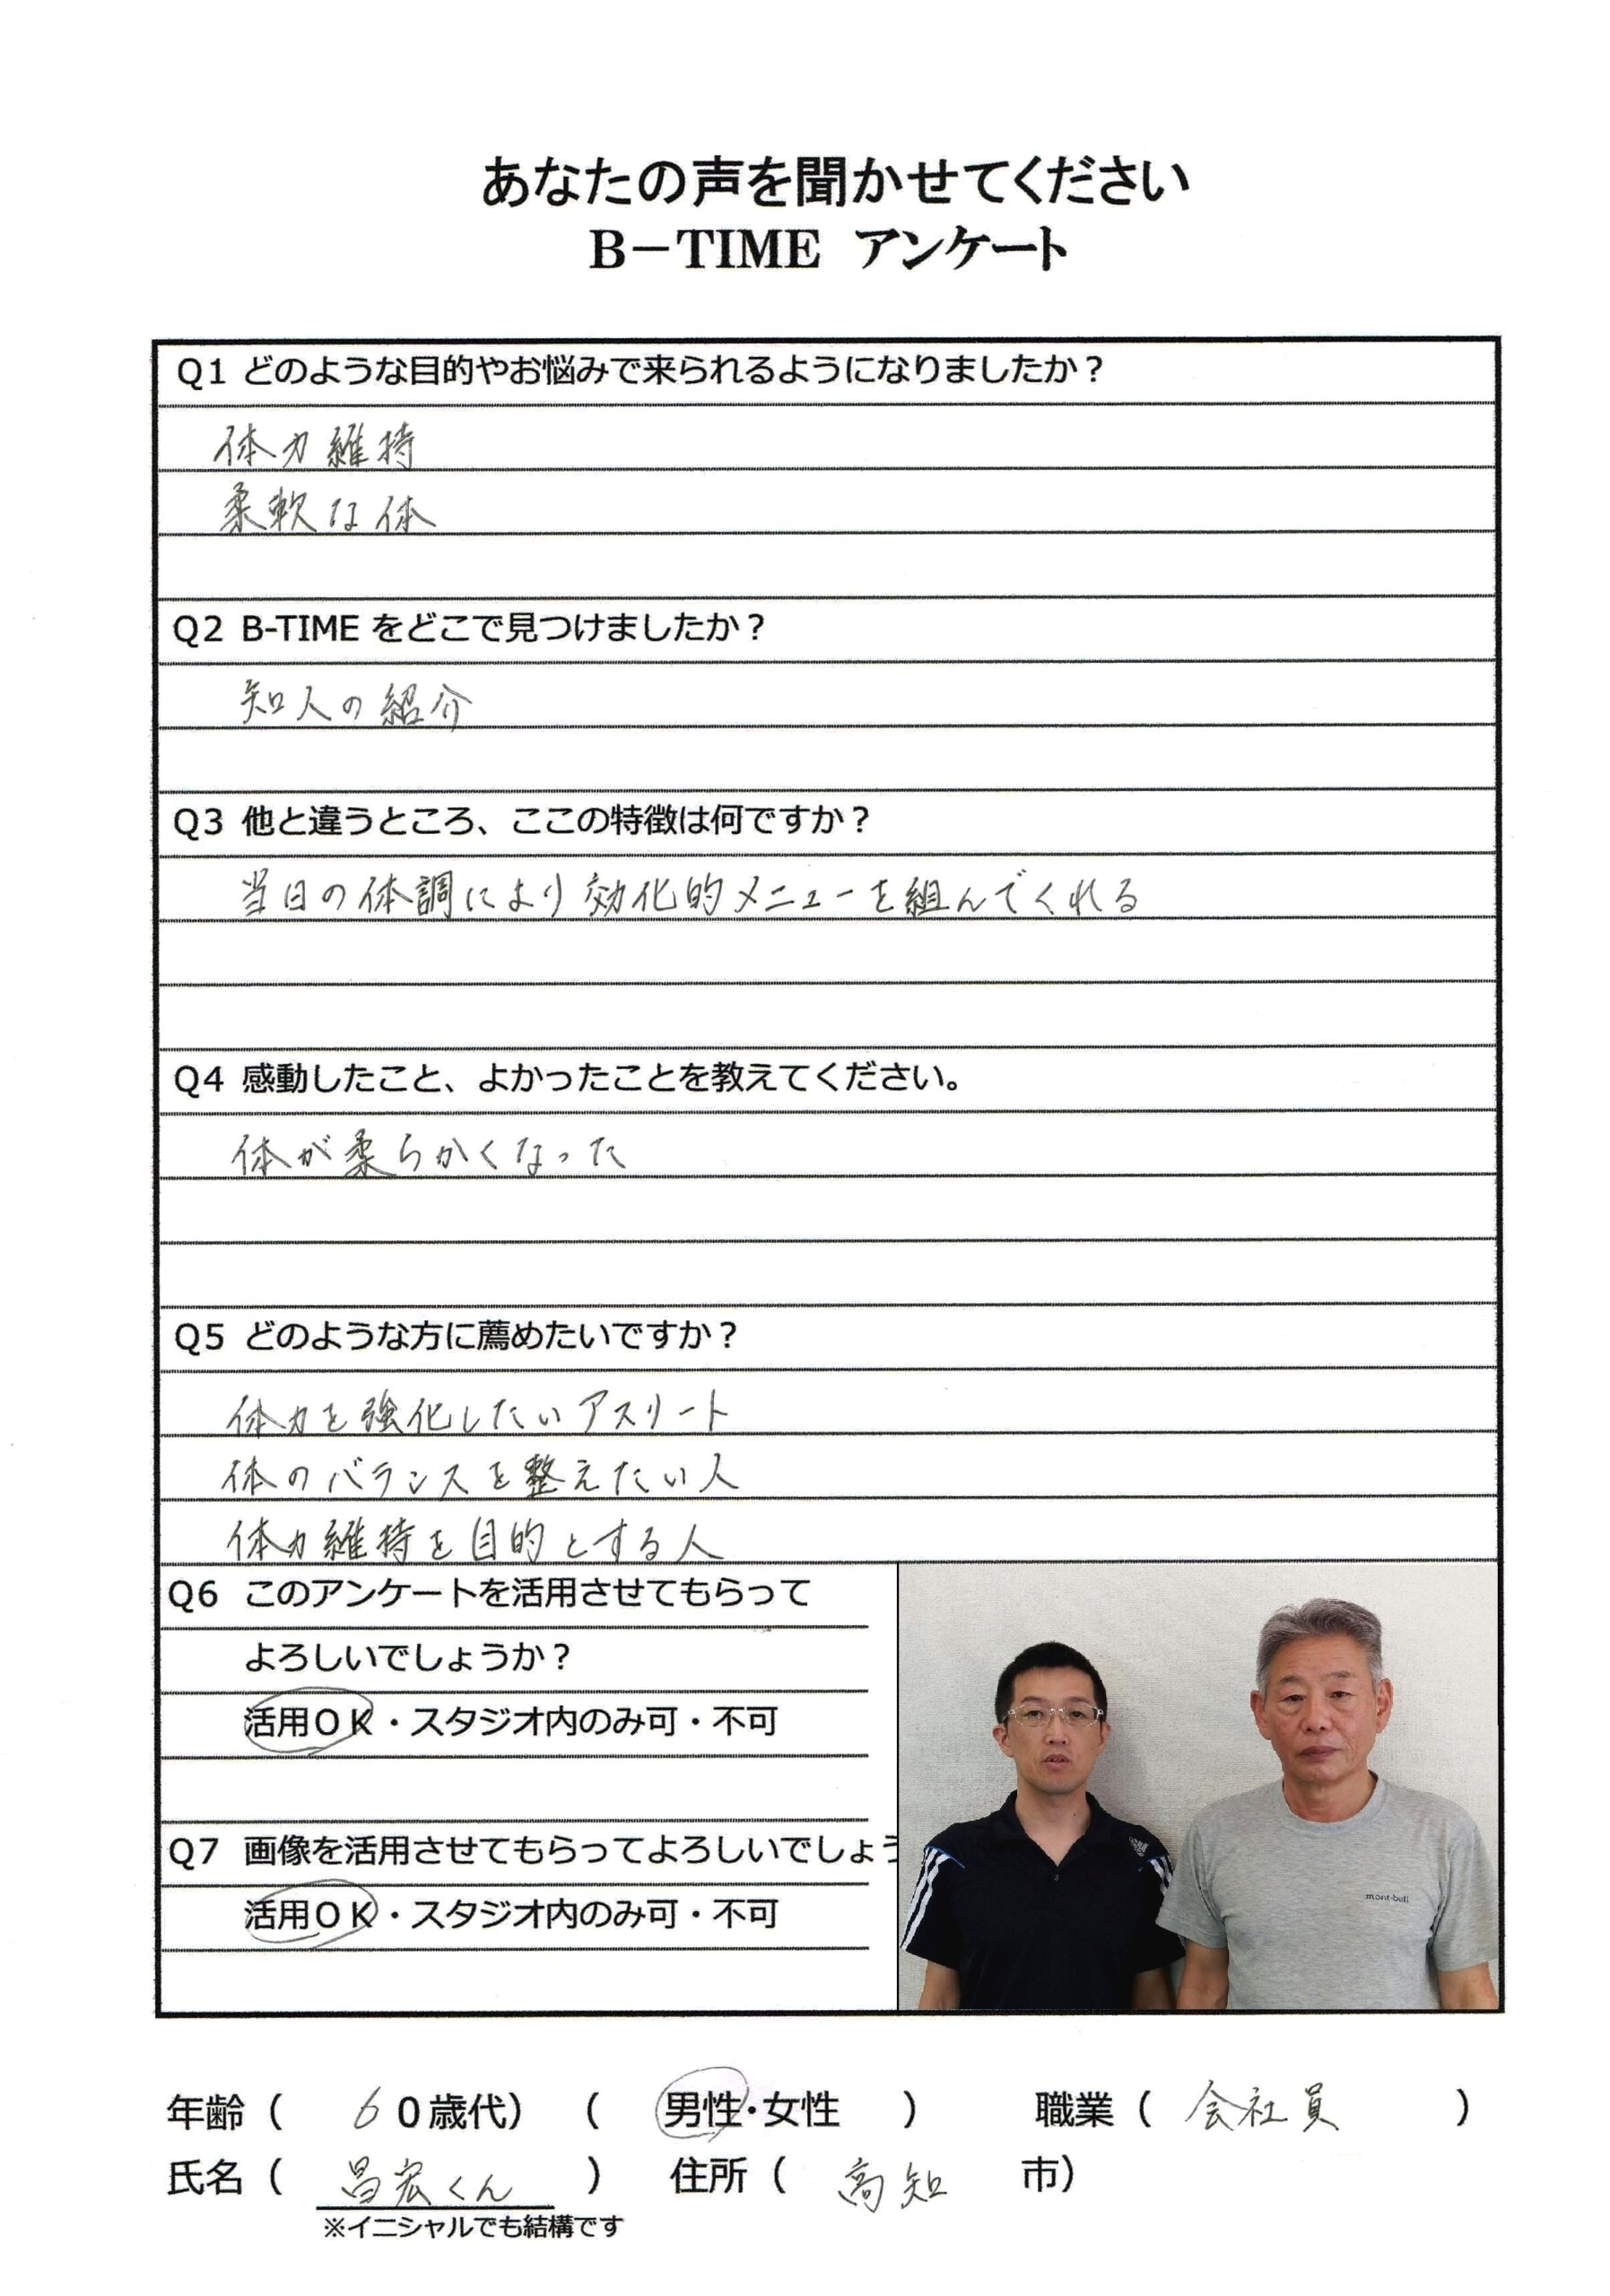 あなたの声を聞かせてください
B－TIME アンケート
Q1 どのような目的やお悩みで来られるようになりましたか？
体力維持
柔軟な体
Q2 B-TIME をどこで見つけましたか？
知人の紹介
Q3 他と違うところ、ここの特徴は何ですか？
当日の体調により効化的メニューを組んでくれる
Q4 感動したこと、よかったことを教えてください。
体が柔らかくなった
Q5 どのような方に薦めたいですか？
体力を強化したいアスリート
体のバランスを整えたい人
体力維持を目的とする人
Q6 このアンケートを活用させてもらって
よろしいでしょうか？
活用ＯＫ・スタジオ内のみ可・不可
Q7 画像を活用させてもらってよろしいでしょう
活用ＯＫ・スタジオ内のみ可・不可
adidas
mont-bell
年齢（ 60歳代） （ 男性・女性 ） 職業（ 会社員 ）
氏名（ 昌宏くん ） 住所（ 高知 市）
※イニシャルでも結構です